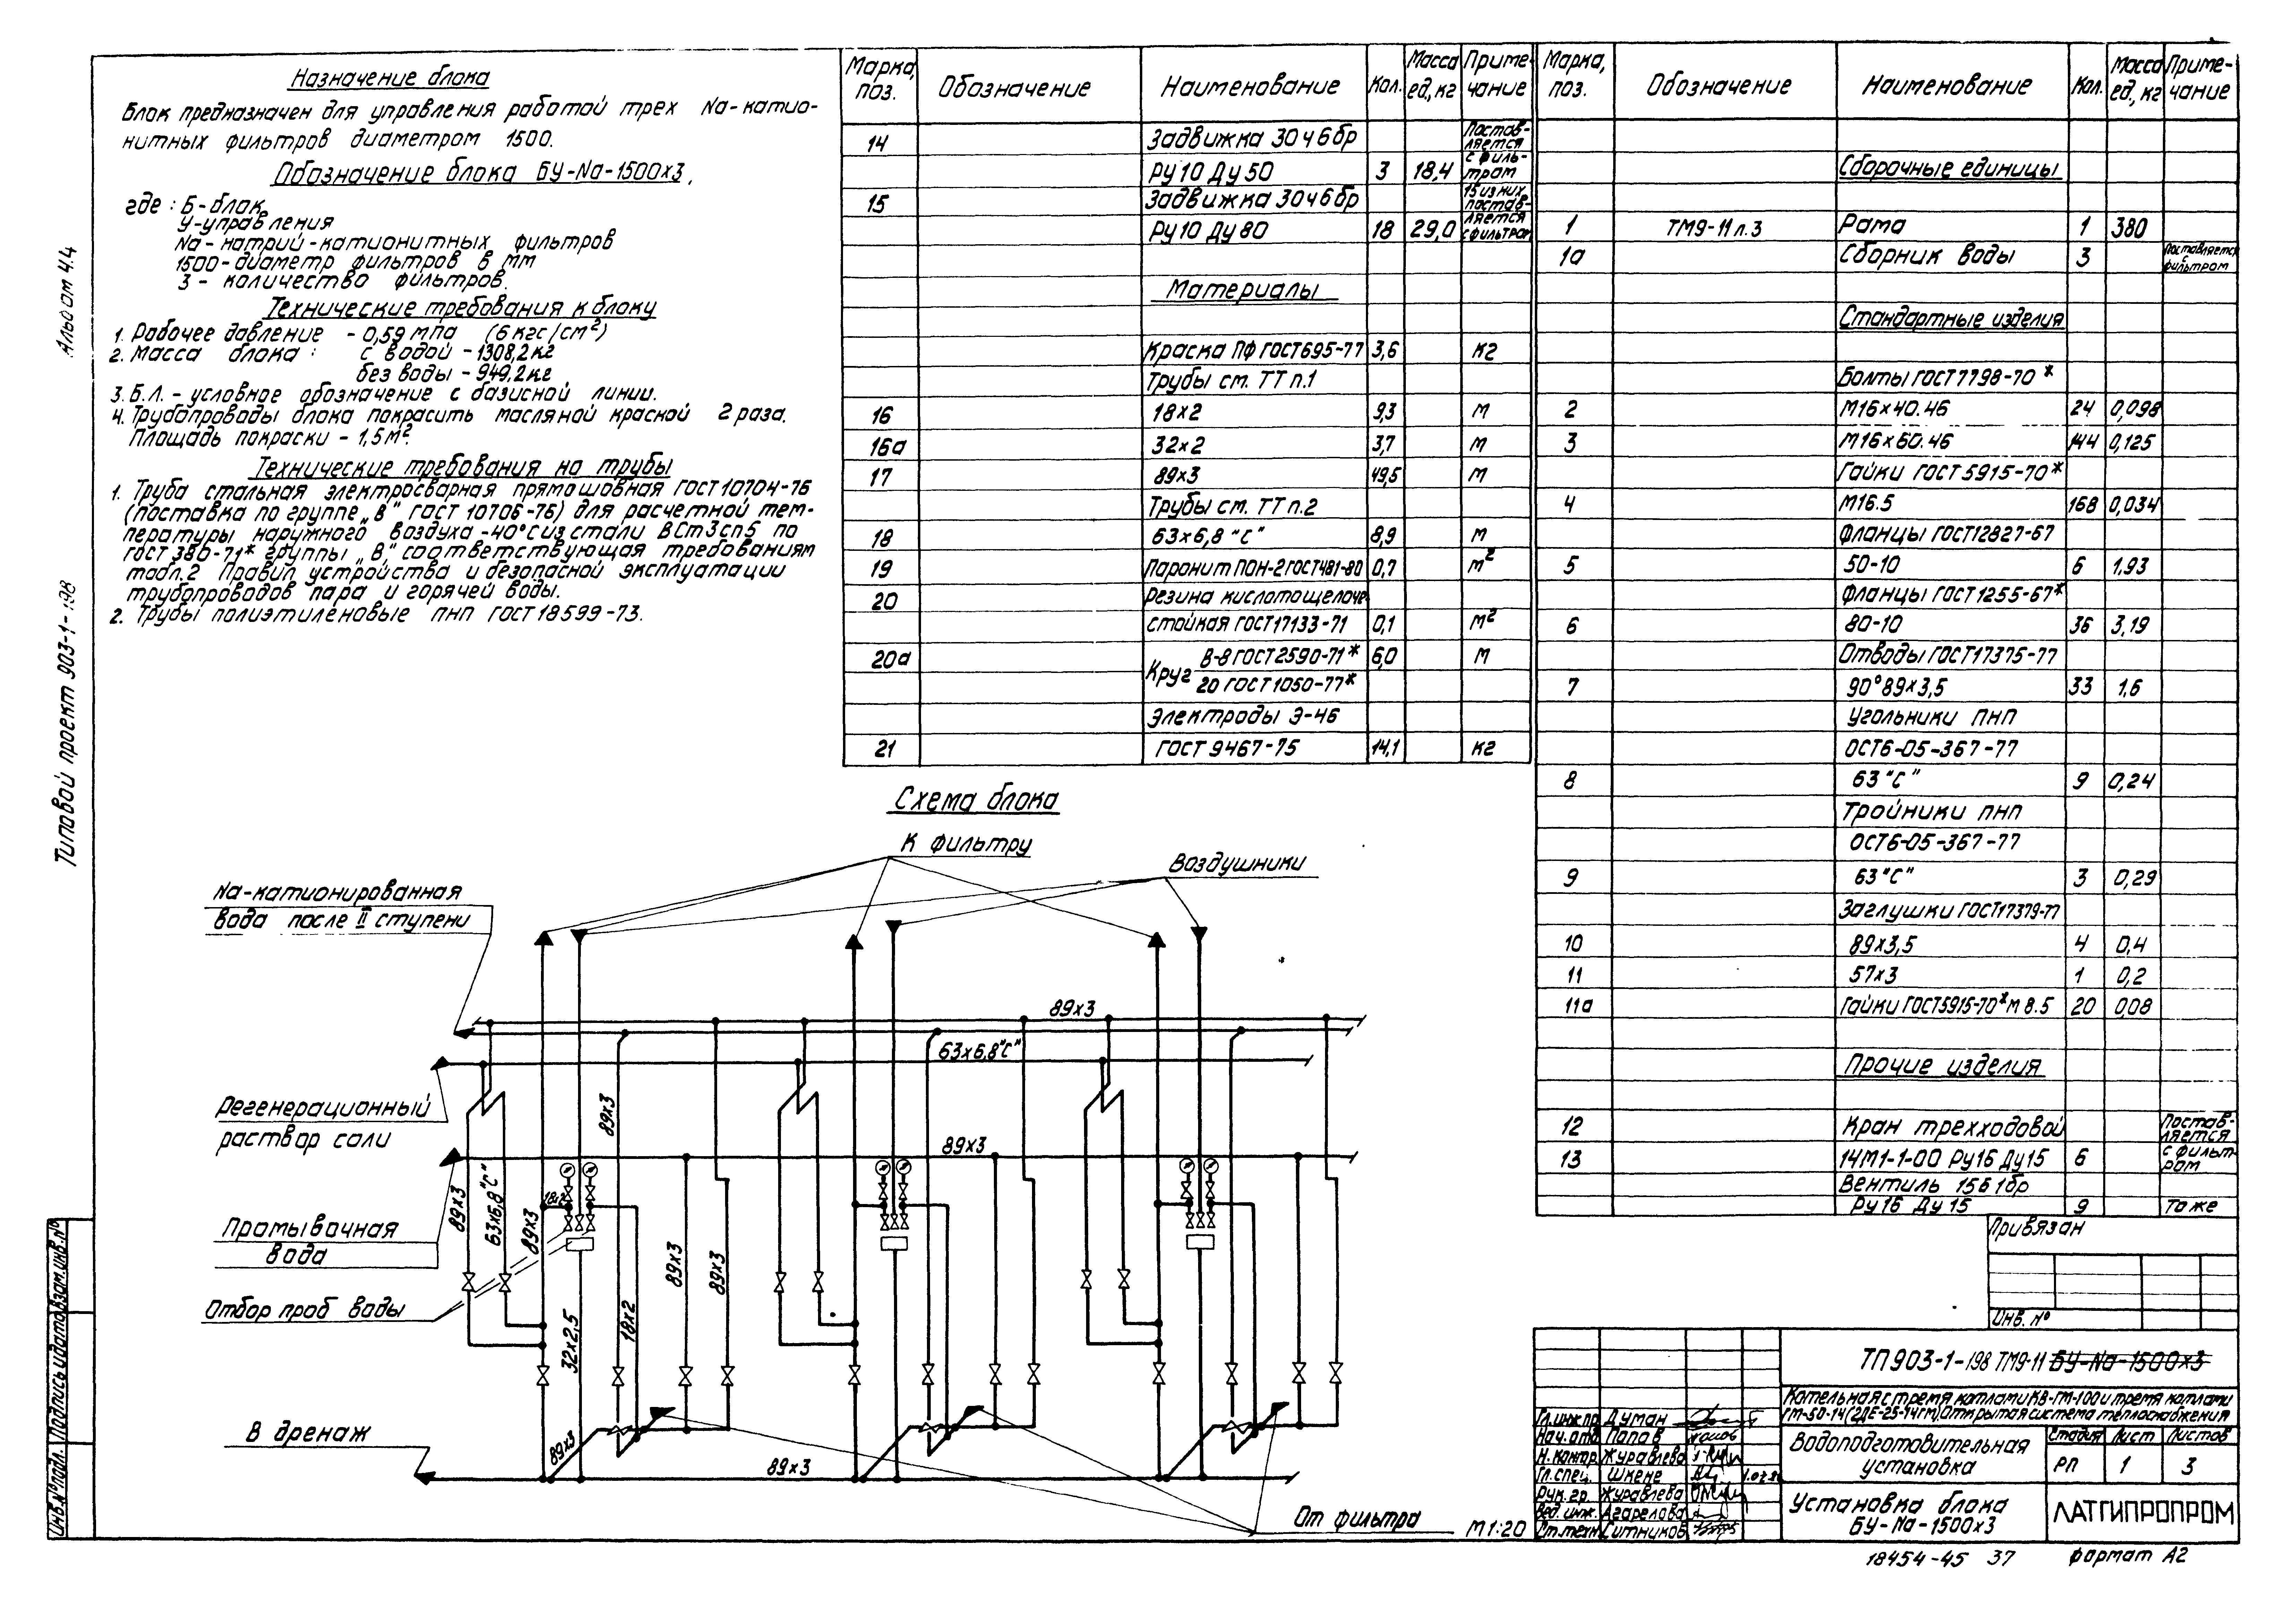 Альбом 4.4
Типовой проект 903-1-198
Назначение блока
Блок предназначен для управления работой трех Na-катио-
нитных фильтров диаметром 1500.
Обозначение блока БУ-Na-1500х3,
где: Б-блок
У-управления
Na-натрий-катионитных фильтров
1500-диаметр фильтров в мм
3 - количество фильтров.
Технические требования к блоку
1. Рабочее давление - 0,59 мПа (6 кгс/см²)
2. Масса блока: с водой - 1308,2 кг
без воды - 949,2 кг
3. Б.Л. - условное обозначение с базисной линии.
4. Трубопроводы блока покрасить масляной краской 2 раза.
Площадь покраски - 1,5 м².
Технические требования на трубы
1. Труба стальная электросварная прямошовная ГОСТ 10704-76
(поставка по группе „В" ГОСТ 10706-76) для расчетной тем-
пературы наружного воздуха -40°С из стали ВСт3сп5 по
ГОСТ 380-71* группы „В" соответствующая требованиям
табл.2 Правил устройства и безопасной эксплуатации
трубопроводов пара и горячей воды.
2. Трубы полиэтиленовые ПНП ГОСТ 18599-73.
Марка, поз. Обозначение Наименование Кол. Масса ед., кг Приме-чание
14 Задвижка 30ч6бр Постав-ляется
Ру10 Ду50 3 18,4 с филь-тром
15 Задвижка 30ч6бр 15 из них постав-
Ру10 Ду80 18 29,0 ляется с фильтром
Материалы
Краска ПФ ГОСТ 695-77 3,6 кг
Трубы см. ТТ п.1
16 18х2 9,3 м
16а 32х2 3,7 м
17 89х3 49,5 м
Трубы см. ТТ п.2
18 63х6,8 "С" 8,9 м
19 Паронит ПОН-2 ГОСТ 481-80 0,7 м²
20 Резина кислотощелоче-
стойкая ГОСТ 17133-71 0,1 м²
20а Круг В-8 ГОСТ 2590-71* 6,0 м
20 ГОСТ 1050-77*
Электроды Э-46
21 ГОСТ 9467-75 14,1 кг
Марка, поз. Обозначение Наименование Кол. Масса ед., кг Приме-чание
Сборочные единицы
1 ТМ9-11 л.3 Рама 1 380
1а Сборник воды 3 Поставляется с фильтром
Стандартные изделия
Болты ГОСТ 7798-70*
2 М16х40.46 24 0,098
3 М16х60.46 144 0,125
Гайки ГОСТ 5915-70*
4 М16.5 168 0,034
Фланцы ГОСТ 12827-67
5 50-10 6 1,93
Фланцы ГОСТ 1255-67*
6 80-10 36 3,19
Отводы ГОСТ 17375-77
7 90° 89х3,5 33 1,6
Угольники ПНП
ОСТ6-05-367-77
8 63 "С" 9 0,24
Тройники ПНП
ОСТ6-05-367-77
9 63 "С" 3 0,29
Заглушки ГОСТ 17379-77
10 89х3,5 4 0,4
11 57х3 1 0,2
11а Гайки ГОСТ 5915-70* М8.5 20 0,08
Прочие изделия
12 Кран трехходовой Постав-ляется
13 14М1-1-00 Ру16 Ду15 6 с фильт-ром
Вентиль 15Б1бр
Ру16 Ду15 9 То же
Схема блока
К фильтру
Воздушники
Na-катионированная
вода после II ступени
89х3
63х6,8"С"
Регенерационный
раствор соли
89х3
89х3
Промывочная
вода
89х3
63х6,8"С"
89х3
18х2
89х3
89х3
Отбор проб воды
32х2,5
18х2
В дренаж
89х3
89х3
От фильтра
М 1:20
Привязан
Инв. №
ТП 903-1-198 ТМ9-11 БУ-Na-1500х3
Котельная с тремя котлами КВ-ГМ-100 и тремя котлами
ГМ-50-14 (2ДЕ-25-14ГМ). Открытая система теплоснабжения
Гл.инж.пр. Думан
Нач.отд. Папов
Н.контр. Журавлева
Гл.спец. Шкене
Рук.гр. Журавлева
Вед.инж. Агарелова
Ст.техн. Ситников
Водоподготовительная
установка
Стадия Лист Листов
РП 1 3
Установка блока
БУ-Na-1500х3
ЛАТГИПРОПРОМ
18454-45 37
формат А2
Инв.№ подл. Подпись и дата Взам.инв.№